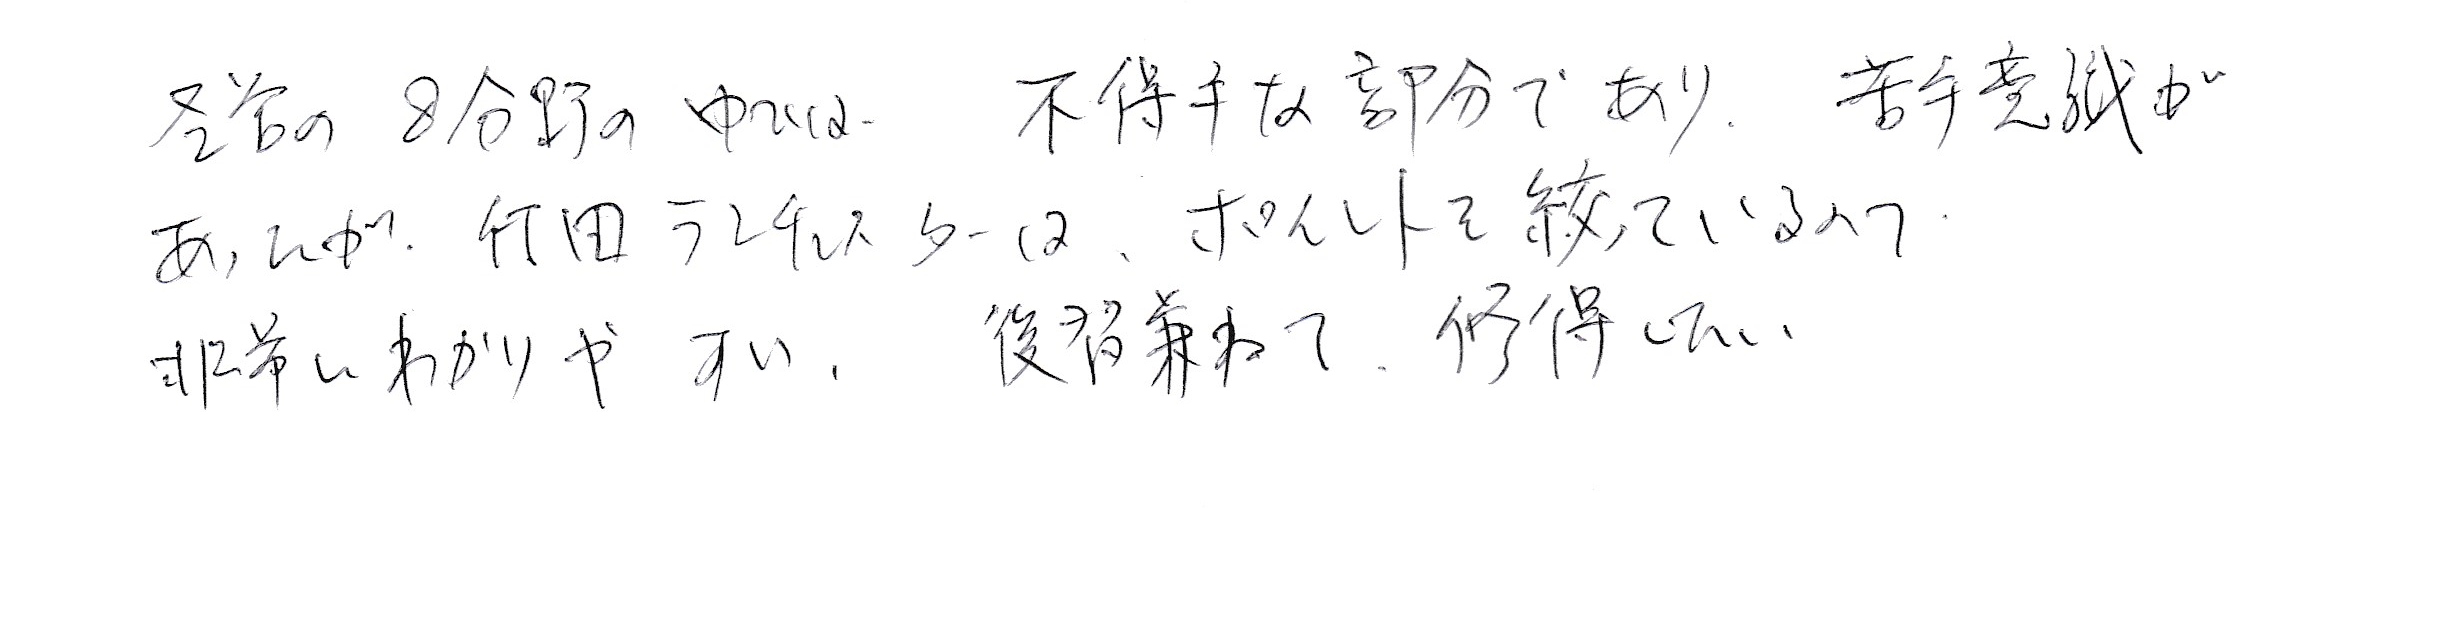 経営の8分野の中では、不得手な部分であり、苦手意識が
あったが、竹田ランチェスターは、ポイントを絞っているので、
非常にわかりやすい、復習兼ねて、修得したい